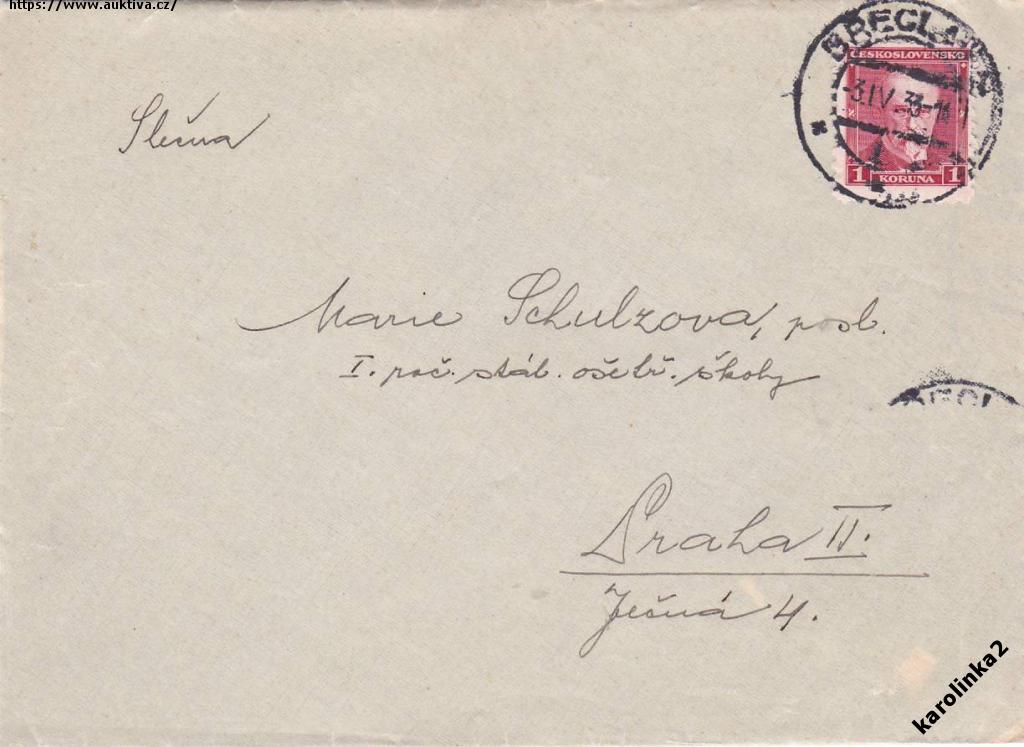 https://www.auktiva.cz/
BŘECLAV
ČESKOSLOVENSKO
-3.IV.33-
1
1 KORUNA 1
Slečna
Marie Schulzova, posl.
I. roč. stát. ošetř. školy
Praha II.
Ječná 4.
karolinka2